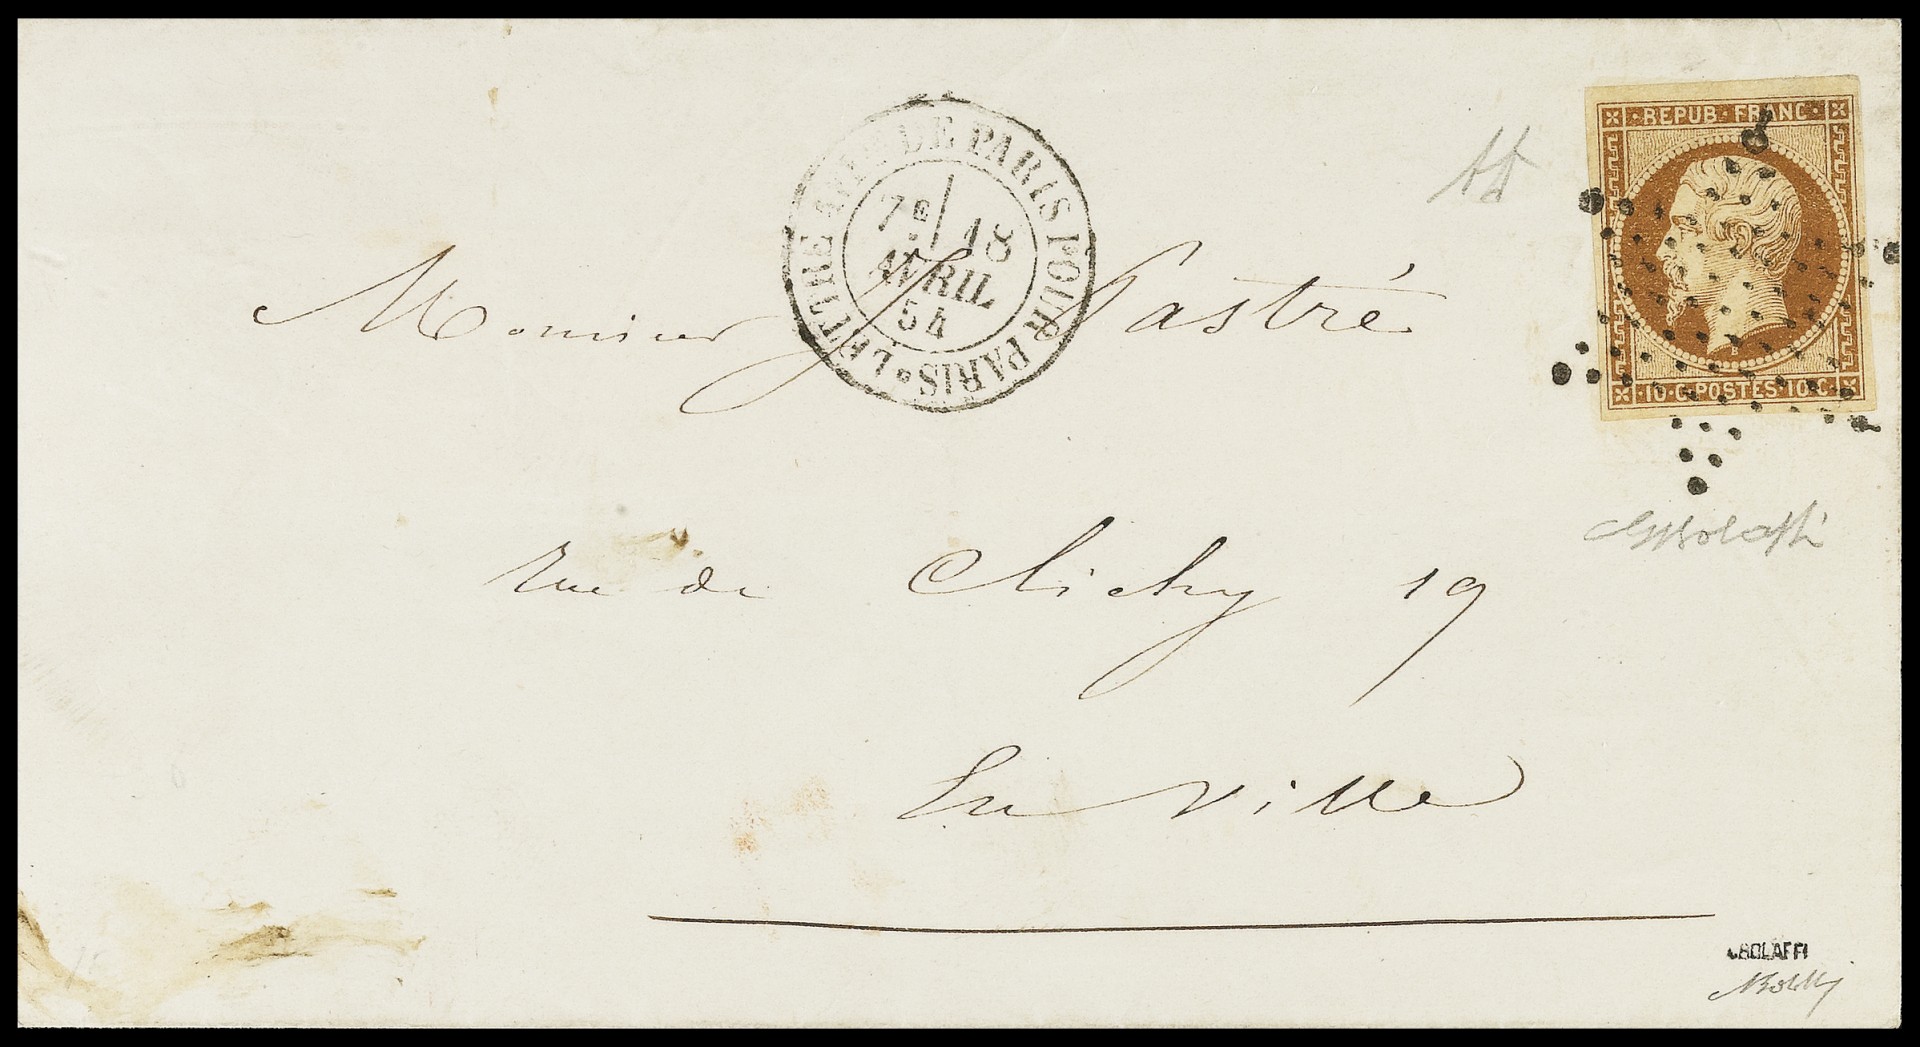 LETTRE AFF. DE PARIS POUR PARIS
7E 18
AVRIL
54
REPUB. FRANC.
B
10. C. POSTES. 10. C.
Monsieur J Pastré
rue de Clichy 19
En Ville
BOLAFFI